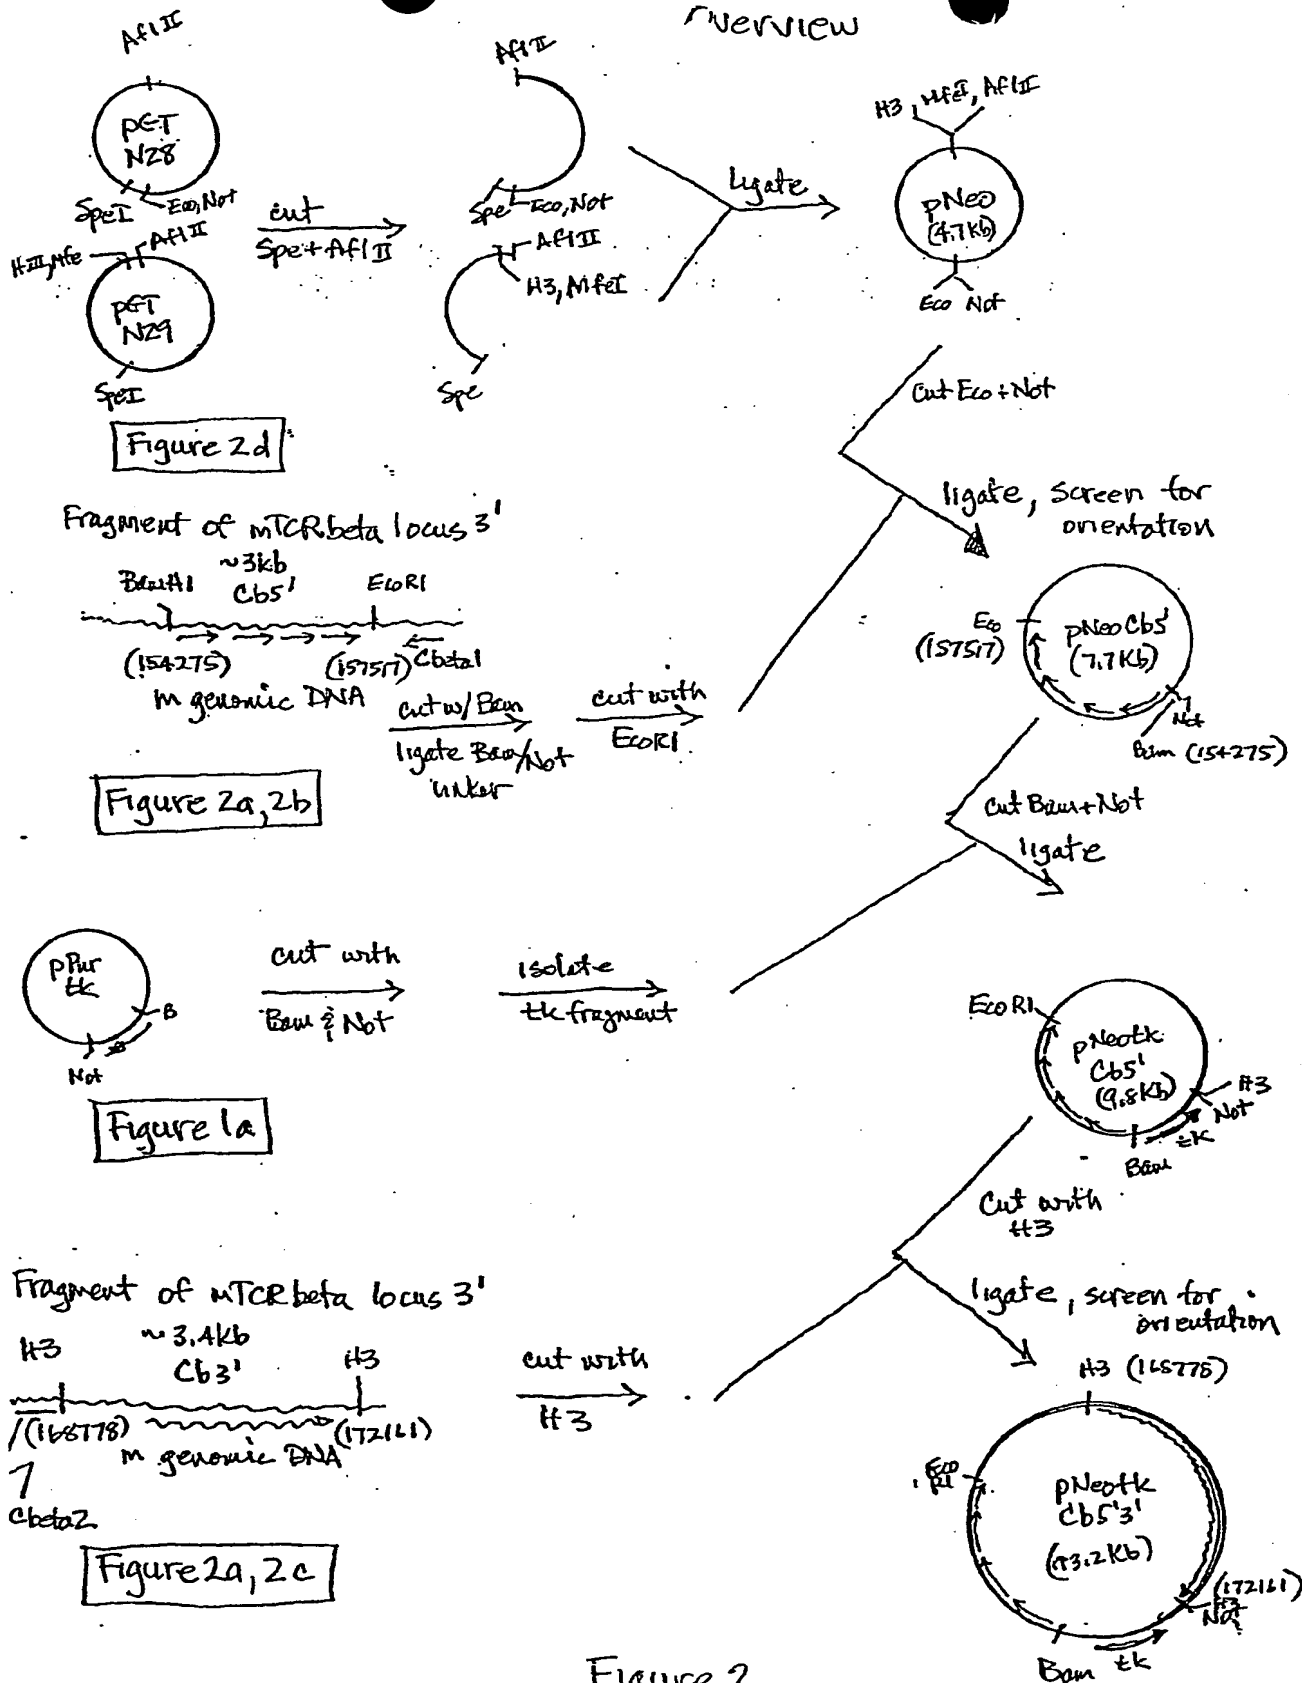 verview
AflII
pET
N28
SpeI
Eco, Not
AflII
HIII, Mfe
pET
N29
SpeI
cut
Spe + AflII
AflII
Spe
Eco, Not
AflII
H3, MfeI
Spe
ligate
H3, MfeI, AflII
pNeo
(4.7Kb)
Eco Not
Figure 2d
cut Eco + Not
ligate, screen for
orientation
Fragment of mTCRbeta locus 3'
~3kb
BamH1
Cb5'
EcoR1
(154275)
(157517)
Cbeta1
m genomic DNA
cut w/ Bam
ligate Bam/Not
linker
cut with
EcoR1
Eco
(157517)
pNeoCb5'
(7.7Kb)
Not
Bam (154275)
Figure 2a, 2b
cut Bam + Not
ligate
pPur
tk
B
Not
cut with
Bam & Not
isolate
tk fragment
Figure 1a
EcoR1
pNeotk
Cb5'
(9.8Kb)
H3
Not
tk
Bam
cut with
H3
ligate, screen for
orientation
Fragment of mTCRbeta locus 3'
~3.4kb
H3
Cb3'
H3
(168778)
(172161)
m genomic DNA
Cbeta2
cut with
H3
H3 (168778)
Eco
R1
pNeotk
Cb5'3'
(13.2Kb)
(172161)
H3
Not
Bam
tk
Figure 2a, 2c
Figure 2